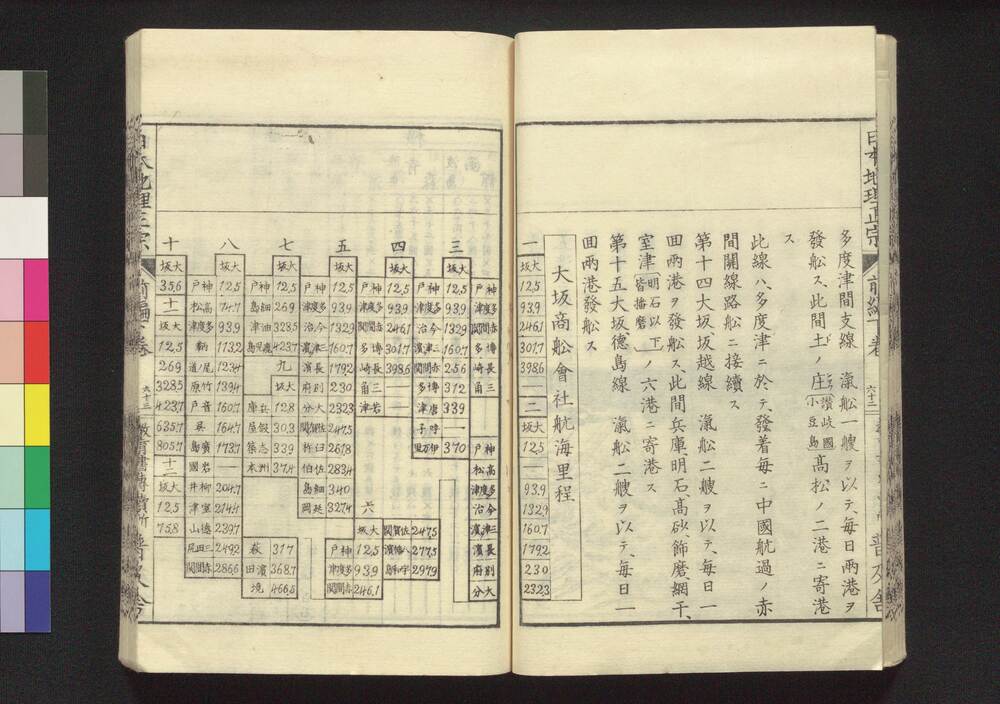 多度津間支線　滊舩一艘ヲ以テ、毎日両港ヲ
發舩ス、此間土ノ庄 讃岐國小豆島 高松ノ二港ニ寄港
ス
此線ハ、多度津ニ於テ、發着毎ニ中國航過ノ赤
間關線路舩ニ接續ス
第十四大坂坂越線　滊舩二艘ヲ以テ、毎日一
回両港ヲ發舩ス、此間兵庫、明石、高砂、飾磨、網干、
室津 明石以下皆播磨 ノ六港ニ寄港ス
第十五大坂德島線　滊舩二艘ヲ以テ、毎日一
回両港發舩ス
大坂商舩會社航海里程
一
大坂
12,5
93,9
246,1
301,7
398,6
二
大坂
12,5
93,9
132,9
160,7
179,2
23,0
232,3
三
大坂
神戸 12,5
多度津 93,9
今治 132,9
三津濱 160,7
赤間關 256
博多 312
唐津 339
呼子
370
神戸
多度津
赤間關
博多
長崎
三角
神戸
高松
多度津
今治
三津濱
長濱
別府
大分
四
大坂
神戸 12,5
多度津 93,9
赤間關 246,1
博多 301,7
長崎 398,6
三角
五
大坂
神戸 12,5
多度津 93,9
今治 132,9
三津濱 160,7
長濱 179,2
別府 230
大分 232,3
佐賀關 247,5
臼杵 267,8
佐伯 283,4
細島 340
六
大坂
神戸 12,5
多度津 93,9
赤間關 246,1
佐賀關 247,5
八幡濱 277,5
宇和島 297,9
七
大坂
神戸 12,5
細島 269
油津 328,5
鹿兒島 423,7
九
大坂
兵庫 12,8
30,3
33,9
洲本 37,4
萩 317
濱田 368,7
境 466,5
八
大坂
神戸 12,5
高松 74,7
多度津 93,9
鞆 113,2
尾ノ道 123,4
竹原 139,4
音戸 160,7
呉 164,7
廣島 173,7
岩國
柳井 204,7
室津 214,4
239,7
三田尻 249,2
赤間關 286,6
十
大坂
35,6
十一
大坂
12,5
269
328,5
423,7
635,7
805,7
十二
大坂
12,5
75,8
日本地理正宗
前編下卷
六十二
六十三